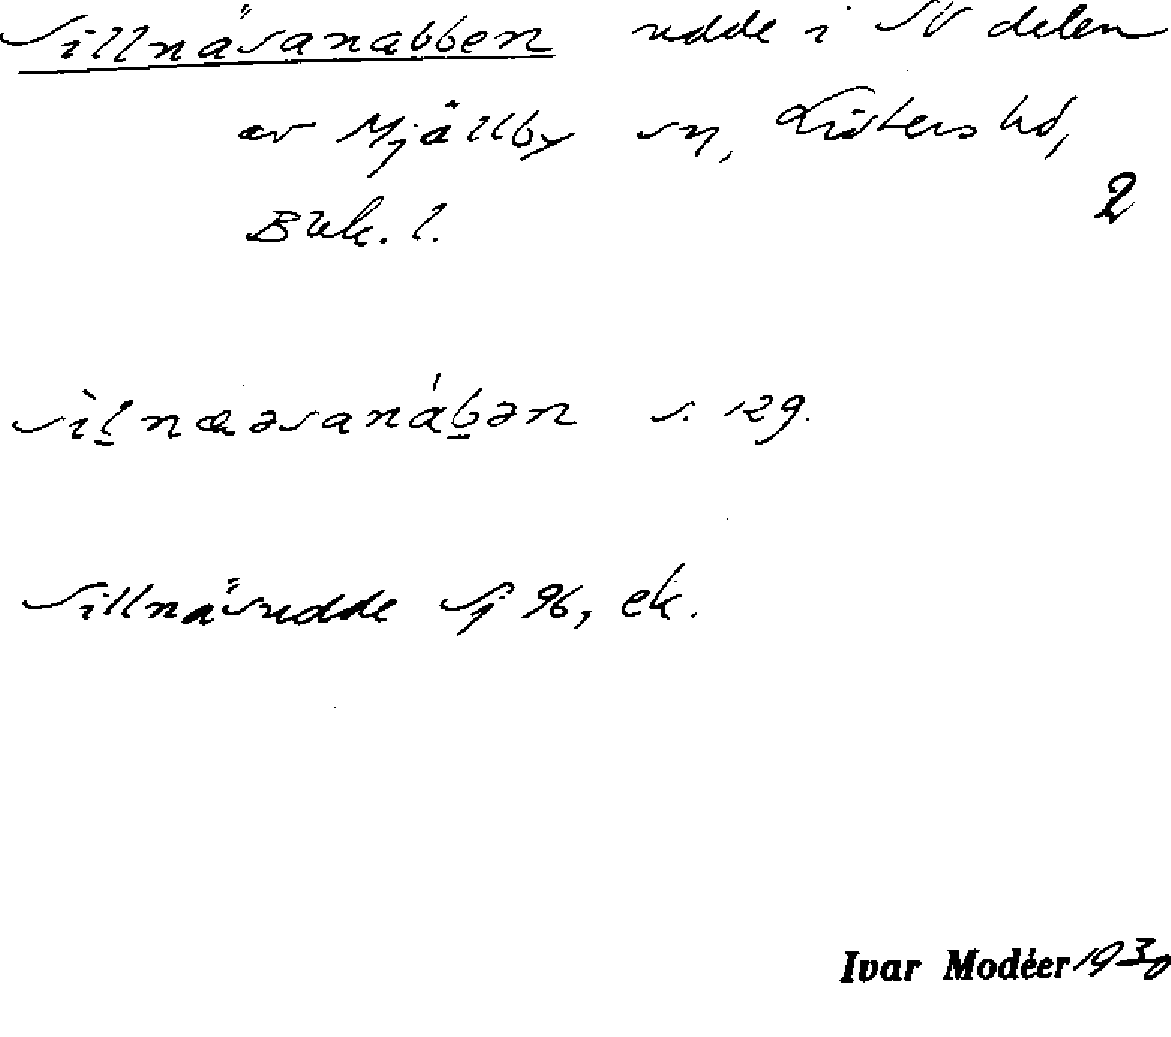 Sillnäsanabben udde i SV delen
av Mjällby sn, Listers hd,
2
Blek. l.
sìl̲næəsanáb̲ən s. 129.
Sillnäsudde Sj 96, ek.
Ivar Modéer 1930